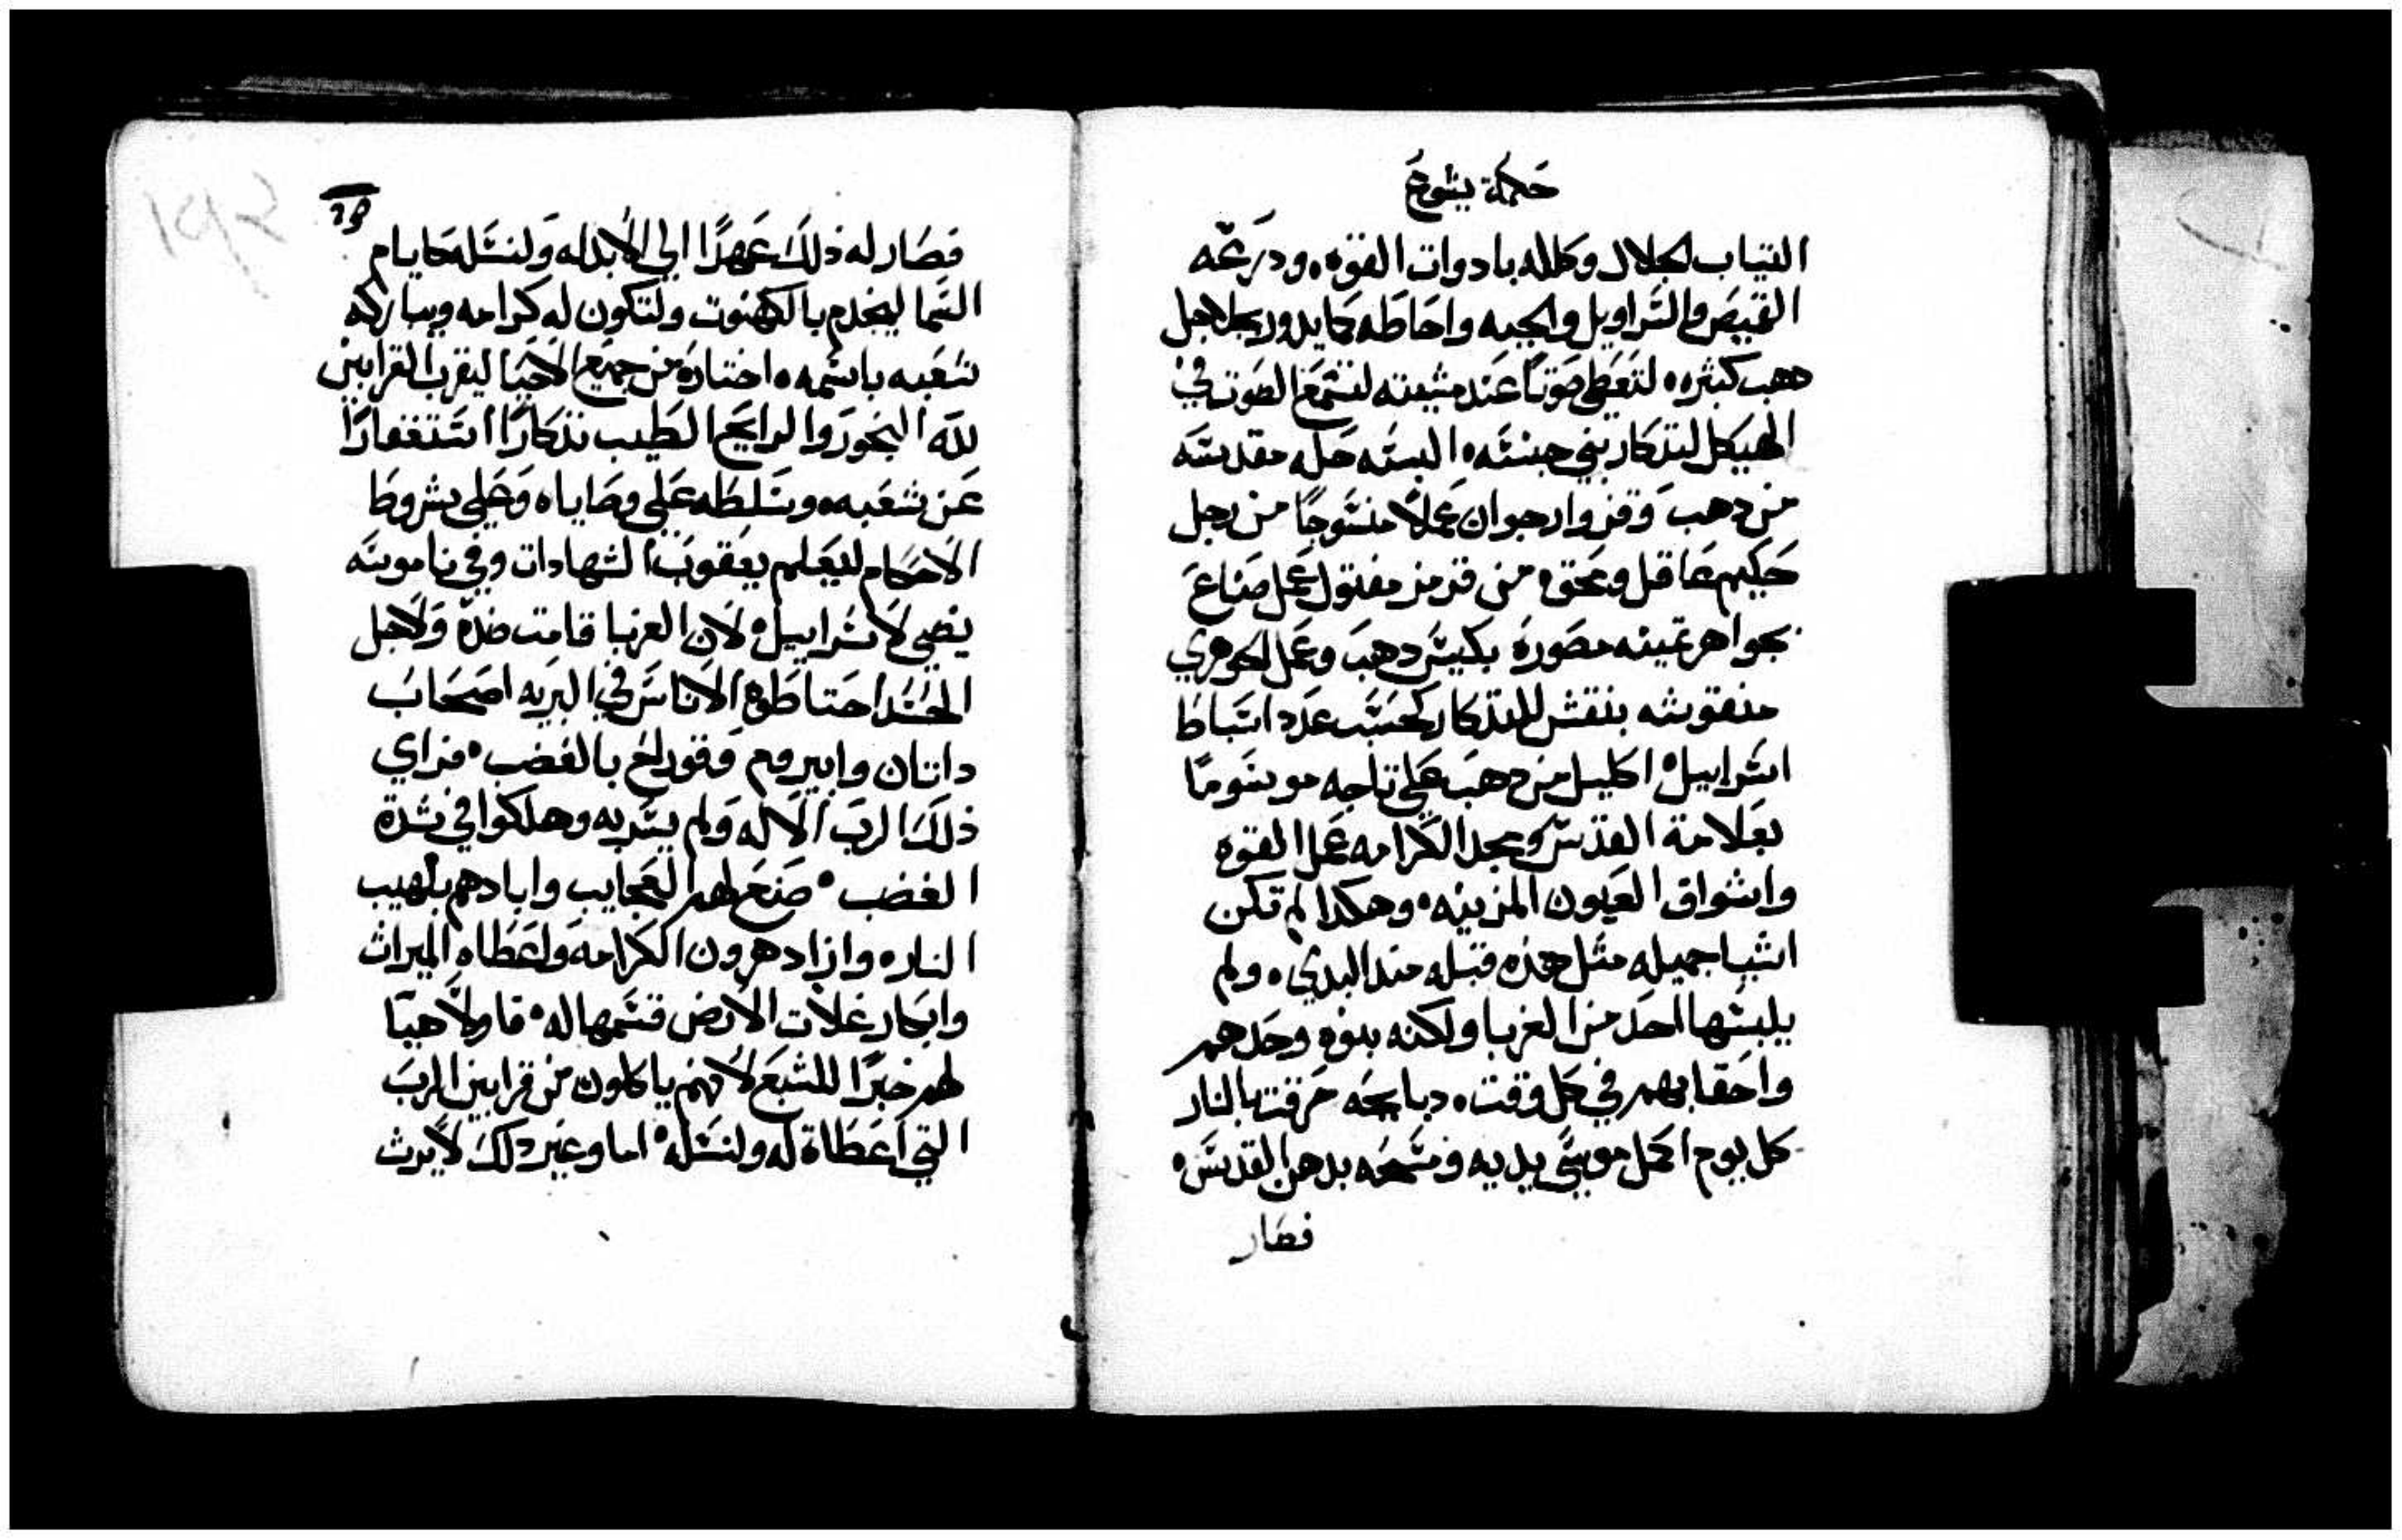 حكمة يشوع
التياب الجلال وكلله بادوات القوه، ودرعه
القميص والسراويل والجبه واحاطه كما يدور بجلاجل
دهب كثيره، لتعطي صوتًا عند مشيته لتسمع الصوت في
الهيكل لتذكار بني جنسه، البسه حله مقدسه
من دهب وقز وارجوان عملًا منسوجًا من رجل
حكيم عاقل وعحق، من قرمز مفتول عمل صناع
بجواهر تمينه مصوره بكيس دهب وعمل الجوهري
منقوشه بنقش للتذكار كحسب عدد اسباط
اسراييل، اكليل من دهب على تاجه موسومًا
بعلامة القدس ومجد الكرامه عمل القوه
واشواق العيون المزينه، وهكدا لم تكن
اشيا جميله مثل هذه قبله منذ البدي، ولم
يلبسها احد من الغربا ولكنه بنوه وحدهم
واحقابهم في كل وقت، دبايحه حرقت بالنار
كل يوم اكمل موسى يديه ومسحه بدهن القدس،
فصار
فصار له ذلك عهدًا الي الابد له ولنسله كايام
السما ليخدم بالكهنوت ولتكون له كرامه ويبارك
شعبه باسمه، اختاره من جميع الاحيا ليقرب القرابين
لله البخور والرايح الطيب تذكارًا استغفارًا
عن شعبه، وسلطه على وصاياه وعلى شروط
الاحكام ليعلم يعقوب الشهادات وفي ناموسه
يضي لاسراييل، لان الغربا قامت ضده ولاجل
الحسد احتاطوه الاناس في البريه اصحاب
داتان وابيروم وقورلح بالغضب، فراي
ذلك الرب الاله ولم يسر به وهلكوا في شدة
الغضب، صنع لهم العجايب وابادهم بلهيب
النار، وازاد هرون الكرامه واعطاه الميراث
وابكار غلات الارض قسمها له، فاولًا هيا
لهم خبزًا للشبع لانهم ياكلون من قرابين الرب
التي اعطاة له ولنسله، اما وغير دلك لا يرث